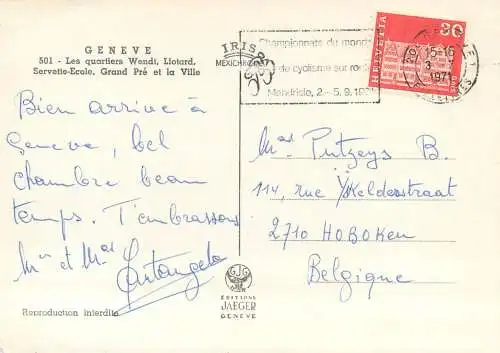 GENEVE
501 - Les quartiers Wendt, Liotard,
Servette-Ecole, Grand Pré et la Ville
IRIS
MEXICHROME
Championnats du monde
de cyclisme sur route
Mendrisio, 2.-5.9.1971
HELVETIA
30
15-16
1971
Bien arrivé à
Genève, bel
chambre beau
temps. T'embrassons
Mr et Mme
Mme Putzeys B.
114, rue V/Kelderstraat
2710 HOBOKEN
Belgique
GJG
EDITIONS
JAEGER
GENEVE
Reproduction interdite